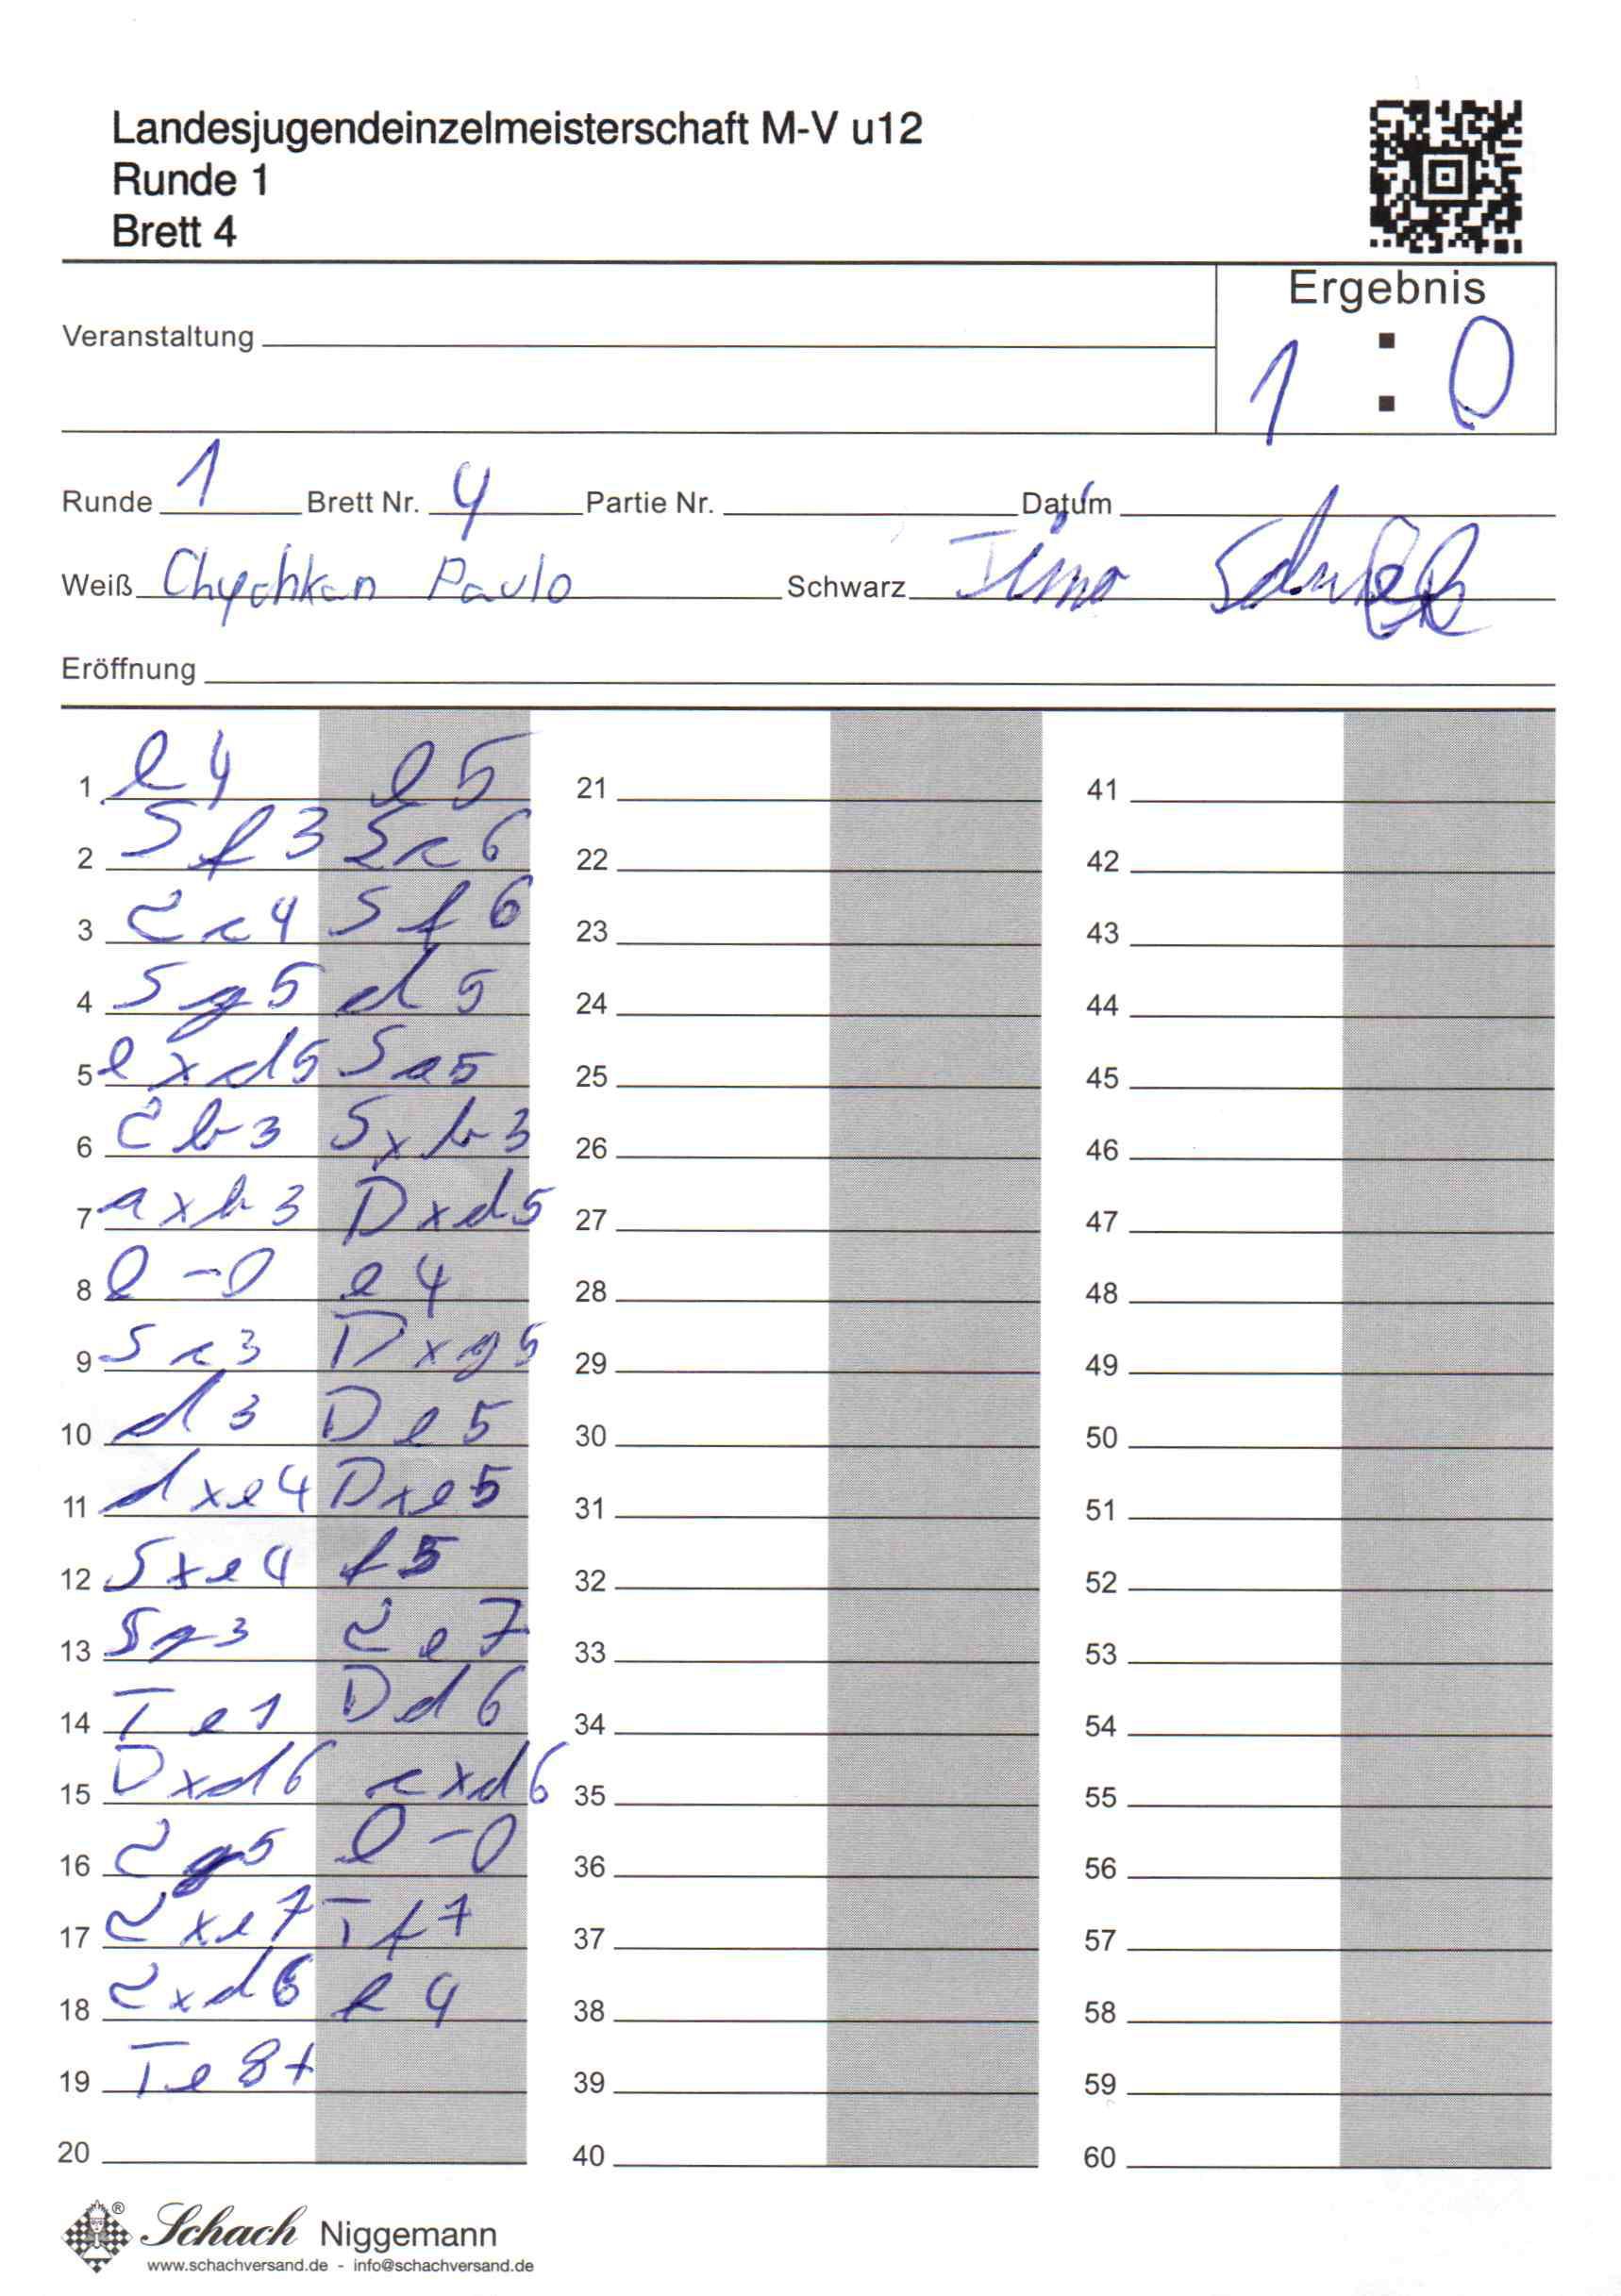 Landesjugendeinzelmeisterschaft M-V u12
Runde 1
Brett 4
Ergebnis
1 : 0
Veranstaltung
Runde 1 Brett Nr. 4 Partie Nr. Datum
Weiß Chychkan Pavlo Schwarz Timo
Eröffnung
1 e4 e5 21 41
2 Sf3 Sc6 22 42
3 Lc4 Sf6 23 43
4 Sg5 d5 24 44
5 exd5 Sa5 25 45
6 Lb3 Sxb3 26 46
7 axb3 Dxd5 27 47
8 0-0 e4 28 48
9 Sc3 Dxg5 29 49
10 d3 De5 30 50
11 dxe4 Dxe5 31 51
12 Sxe4 f5 32 52
13 Sg3 Le7 33 53
14 Te1 Dd6 34 54
15 Dxd6 cxd6 35 55
16 Lg5 0-0 36 56
17 Lxe7 Tf7 37 57
18 Lxd6 f4 38 58
19 Te8+ 39 59
20 40 60
® Schach Niggemann
www.schachversand.de - info@schachversand.de